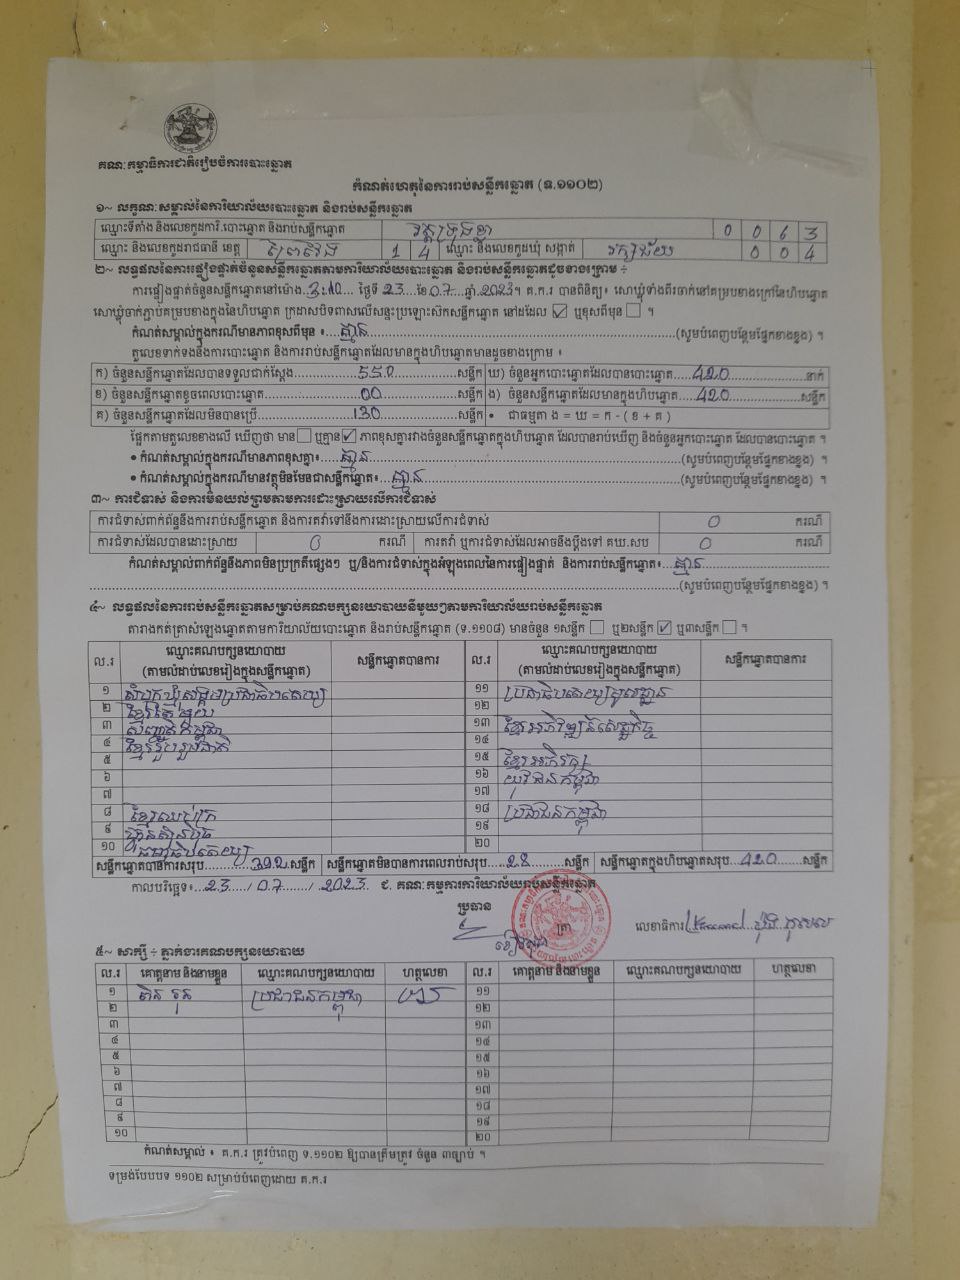 គណៈកម្មាធិការជាតិរៀបចំការបោះឆ្នោត
កំណត់ហេតុនៃការរាប់សន្លឹកឆ្នោត (ទ.១១០២)
១~ លក្ខណៈសម្គាល់នៃការិយាល័យបោះឆ្នោត និងរាប់សន្លឹកឆ្នោត
ឈ្មោះទីតាំង និងលេខកូដការិ.បោះឆ្នោត និងរាប់សន្លឹកឆ្នោត 0 0 6 3
ឈ្មោះ និងលេខកូដរាជធានី ខេត្ត ព្រៃវែង 1 4 ឈ្មោះ និងលេខកូដឃុំ សង្កាត់ 0 0 4
២~ លទ្ធផលនៃការផ្ទៀងផ្ទាត់ចំនួនសន្លឹកឆ្នោតតាមការិយាល័យបោះឆ្នោត និងរាប់សន្លឹកឆ្នោតដូចខាងក្រោម ÷
ការផ្ទៀងផ្ទាត់ចំនួនសន្លឹកឆ្នោតនៅម៉ោង 3:10 ថ្ងៃទី 23 ខែ 07 ឆ្នាំ 2023។ គ.ក.រ បានពិនិត្យ៖ សោឃ្លុំទាំងពីរចាក់នៅគម្របខាងក្រៅនៃហិបឆ្នោត
សោឃ្លុំចាក់ភ្ជាប់គម្របខាងក្នុងនៃហិបឆ្នោត ក្រដាសបិទពាសលើសន្ទះប្រឡោះស៊កសន្លឹកឆ្នោត នៅដដែល ☑ ឬខុសពីមុន ☐ ។
កំណត់សម្គាល់ក្នុងករណីមានភាពខុសពីមុន ៖ គ្មាន (សូមបំពេញបន្ថែមផ្នែកខាងខ្នង) ។
តួលេខទាក់ទងនឹងការបោះឆ្នោត និងការរាប់សន្លឹកឆ្នោតដែលមានក្នុងហិបឆ្នោតមានដូចខាងក្រោម ៖
ក) ចំនួនសន្លឹកឆ្នោតដែលបានទទួលជាក់ស្តែង 550 សន្លឹក ឃ) ចំនួនអ្នកបោះឆ្នោតដែលបានបោះឆ្នោត 420 នាក់
ខ) ចំនួនសន្លឹកឆ្នោតខូចពេលបោះឆ្នោត 00 សន្លឹក ង) ចំនួនសន្លឹកឆ្នោតដែលមានក្នុងហិបឆ្នោត 420 សន្លឹក
គ) ចំនួនសន្លឹកឆ្នោតដែលមិនបានប្រើ 130 សន្លឹក • ជាធម្មតា ង = ឃ = ក - ( ខ + គ )
ផ្អែកតាមតួលេខខាងលើ ឃើញថា មាន ☐ ឬគ្មាន ☑ ភាពខុសគ្នារវាងចំនួនសន្លឹកឆ្នោតក្នុងហិបឆ្នោត ដែលបានរាប់ឃើញ និងចំនួនអ្នកបោះឆ្នោត ដែលបានបោះឆ្នោត ។
• កំណត់សម្គាល់ក្នុងករណីមានភាពខុសគ្នា៖ គ្មាន (សូមបំពេញបន្ថែមផ្នែកខាងខ្នង) ។
• កំណត់សម្គាល់ក្នុងករណីមានវត្ថុមិនមែនជាសន្លឹកឆ្នោត៖ គ្មាន (សូមបំពេញបន្ថែមផ្នែកខាងខ្នង) ។
៣~ ការជំទាស់ និងការមិនយល់ព្រមតាមការដោះស្រាយលើការជំទាស់
ការជំទាស់ពាក់ព័ន្ធនឹងការរាប់សន្លឹកឆ្នោត និងការតវ៉ាទៅនឹងការដោះស្រាយលើការជំទាស់ 0 ករណី
ការជំទាស់ដែលបានដោះស្រាយ 0 ករណី ការតវ៉ា ឬការជំទាស់ដែលអាចនឹងប្តឹងទៅ គឃ.សប 0 ករណី
កំណត់សម្គាល់ពាក់ព័ន្ធនឹងភាពមិនប្រក្រតីផ្សេងៗ ឬ/និងការជំទាស់ក្នុងអំឡុងពេលនៃការផ្ទៀងផ្ទាត់ និងការរាប់សន្លឹកឆ្នោត៖ គ្មាន
(សូមបំពេញបន្ថែមផ្នែកខាងខ្នង) ។
៤~ លទ្ធផលនៃការរាប់សន្លឹកឆ្នោតសម្រាប់គណបក្សនយោបាយនីមួយៗតាមការិយាល័យរាប់សន្លឹកឆ្នោត
តារាងកត់ត្រាសំឡេងឆ្នោតតាមការិយាល័យបោះឆ្នោត និងរាប់សន្លឹកឆ្នោត (ទ.១១០៨) មានចំនួន ១សន្លឹក ☐ ឬ២សន្លឹក ☑ ឬ៣សន្លឹក ☐ ។
ល.រ ឈ្មោះគណបក្សនយោបាយ (តាមលំដាប់លេខរៀងក្នុងសន្លឹកឆ្នោត) សន្លឹកឆ្នោតបានការ ល.រ ឈ្មោះគណបក្សនយោបាយ (តាមលំដាប់លេខរៀងក្នុងសន្លឹកឆ្នោត) សន្លឹកឆ្នោតបានការ
១ សំបុកឃ្មុំសង្គមប្រជាធិបតេយ្យ ១១
២ ខ្មែរតែមួយ ១២
៣ សញ្ជាតិកម្ពុជា ១៣ ខ្មែរអភិវឌ្ឍន៍សេដ្ឋកិច្ច
៤ ខ្មែររួបរួមជាតិ ១៤
៥ ១៥
៦ ១៦ យុវជនកម្ពុជា
៧ ១៧
៨ ខ្មែរឈប់ក្រ ១៨ ប្រជាជនកម្ពុជា
៩ ហ្វ៊ុនស៊ិនប៉ិច ១៩
១០ ធម្មាធិបតេយ្យ ២០
សន្លឹកឆ្នោតបានការសរុប 392 សន្លឹក សន្លឹកឆ្នោតមិនបានការពេលរាប់សរុប 28 សន្លឹក សន្លឹកឆ្នោតក្នុងហិបឆ្នោតសរុប 420 សន្លឹក
កាលបរិច្ឆេទ៖ 23 / 07 / 2023 ជ. គណៈកម្មការការិយាល័យរាប់សន្លឹកឆ្នោត
ប្រធាន
ត្រា
លេខាធិការ
៥~ សាក្សី ÷ ភ្នាក់ងារគណបក្សនយោបាយ
ល.រ គោត្តនាម និងនាមខ្លួន ឈ្មោះគណបក្សនយោបាយ ហត្ថលេខា ល.រ គោត្តនាម និងនាមខ្លួន ឈ្មោះគណបក្សនយោបាយ ហត្ថលេខា
១ ប្រជាជនកម្ពុជា ១១
២ ១២
៣ ១៣
៤ ១៤
៥ ១៥
៦ ១៦
៧ ១៧
៨ ១៨
៩ ១៩
១០ ២០
កំណត់សម្គាល់ ៖ គ.ក.រ ត្រូវបំពេញ ទ.១១០២ ឱ្យបានត្រឹមត្រូវ ចំនួន ៣ច្បាប់ ។
ទម្រង់បែបបទ ១១០២ សម្រាប់បំពេញដោយ គ.ក.រ